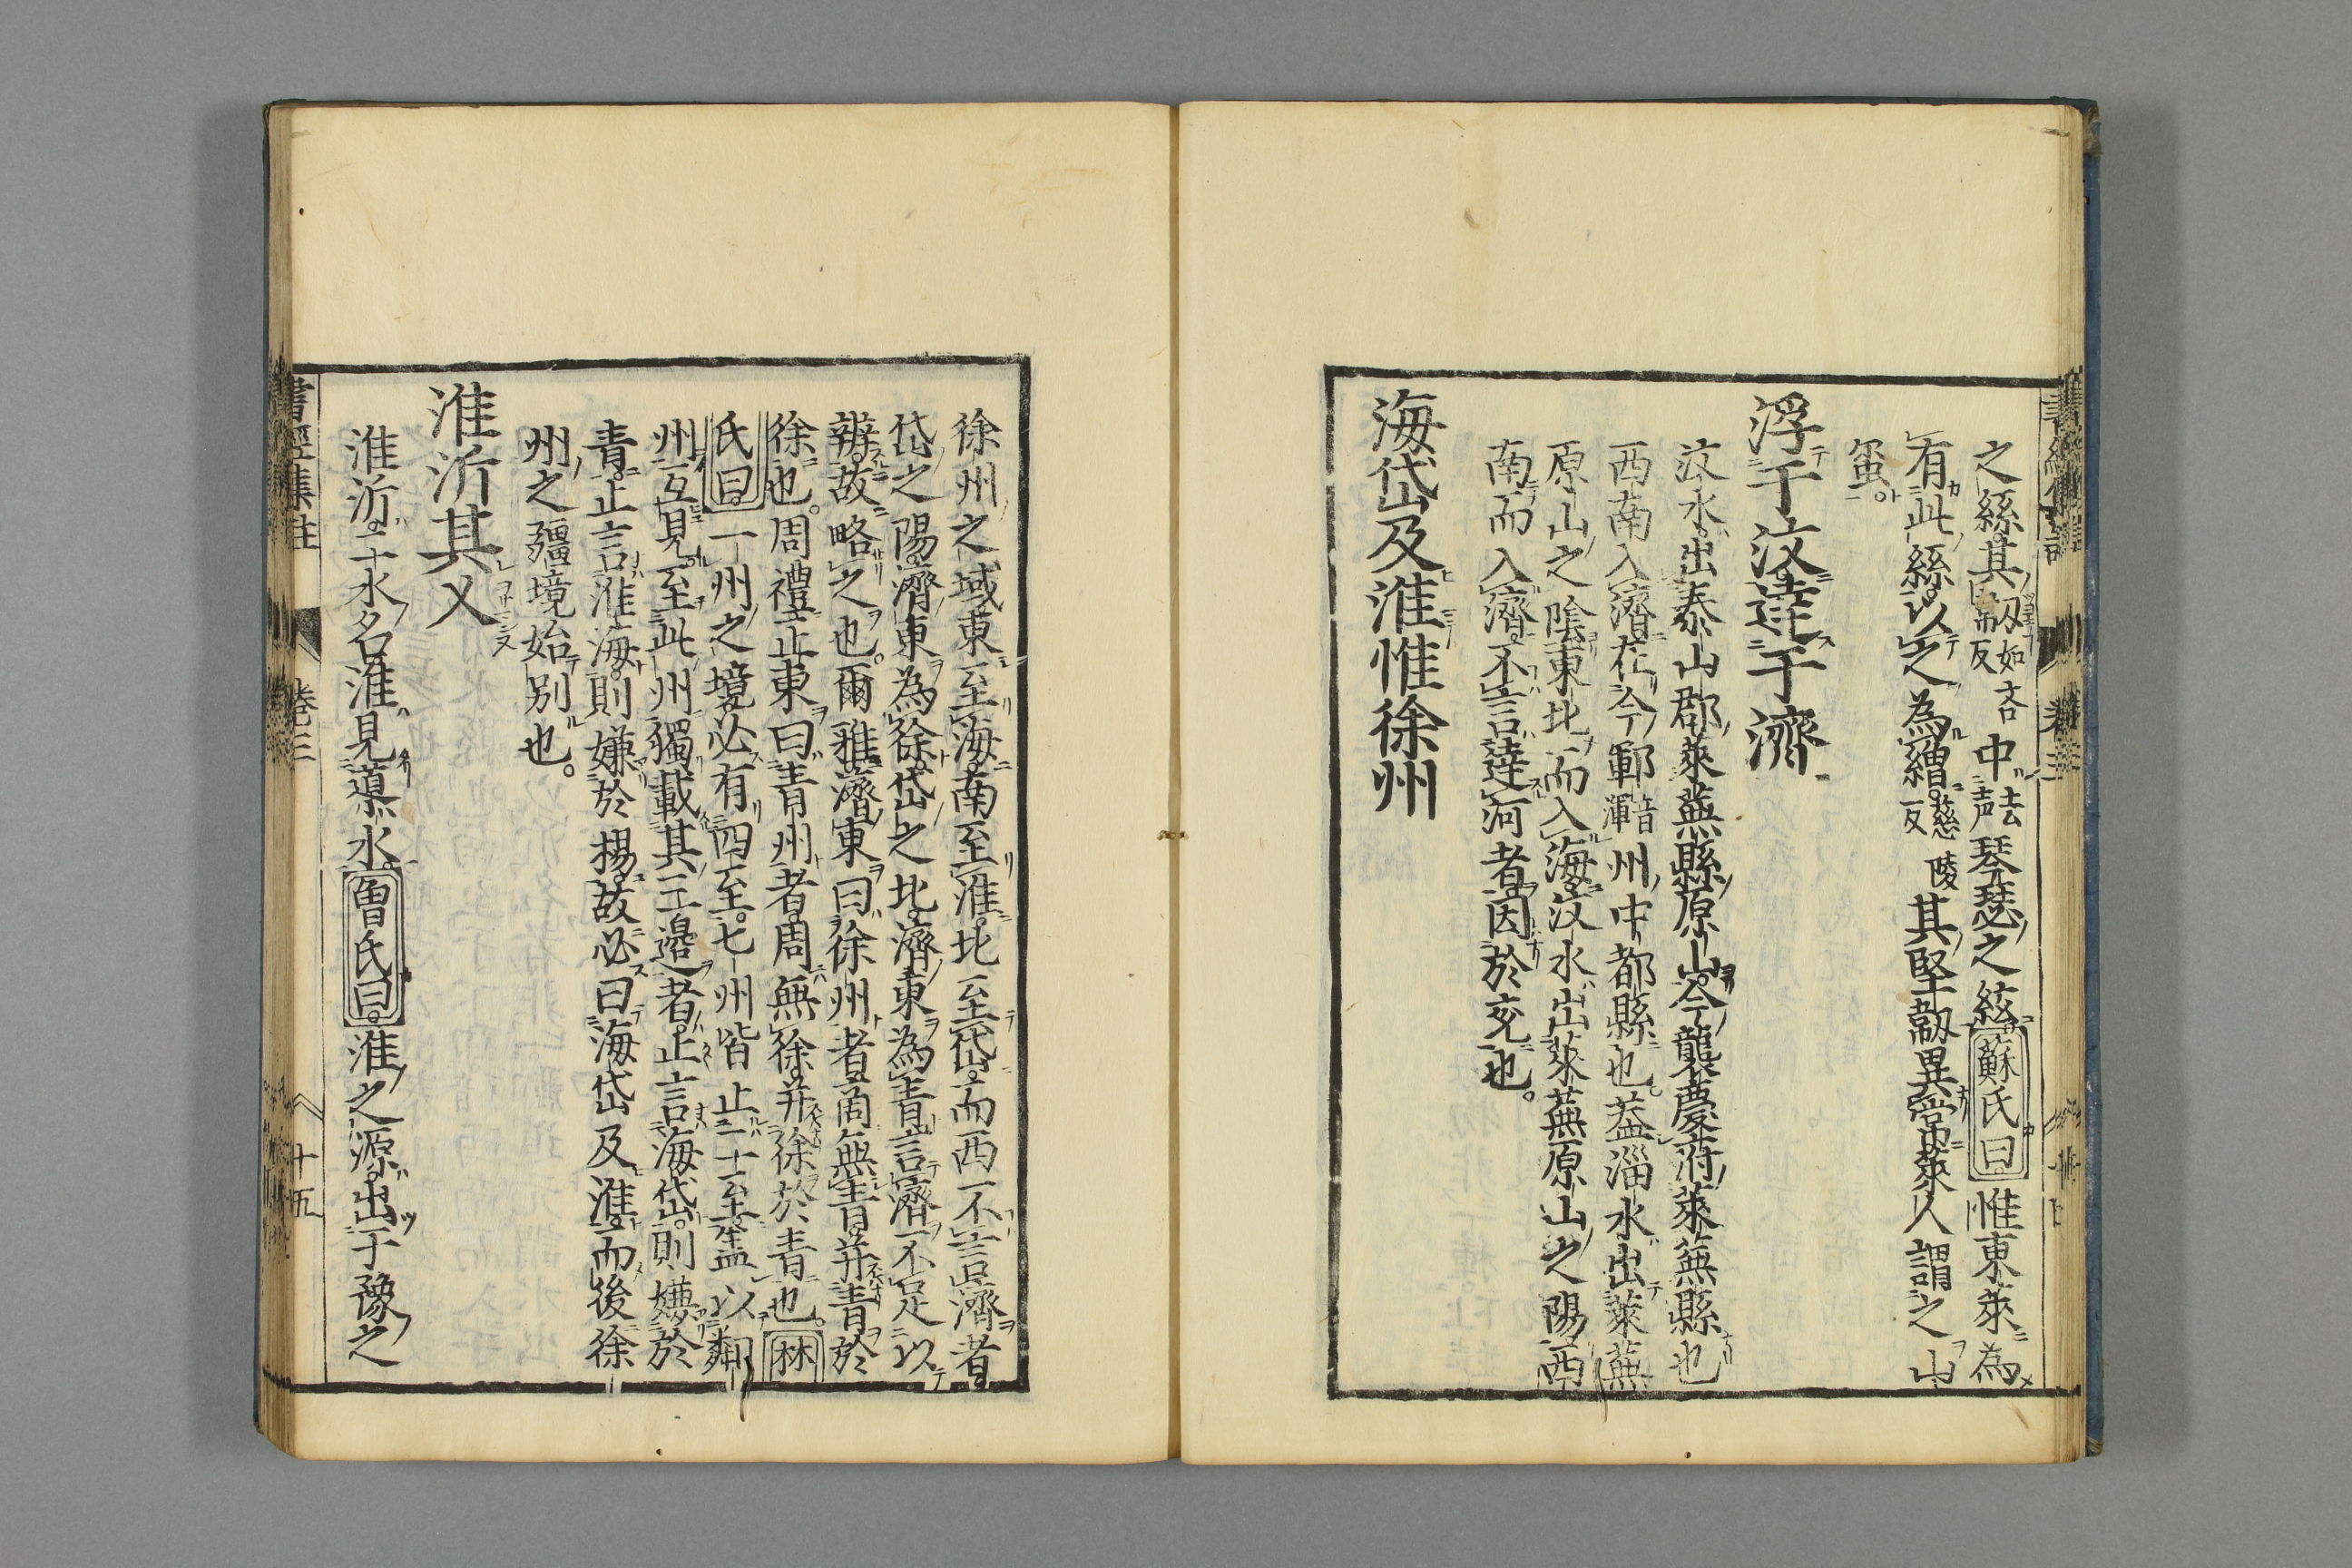 之絲其韌而反如吝中去声琴瑟之絃蘇氏曰惟東萊為
有此絲以之為繒慈陵反其堅韌異常萊人謂之山
蚕
浮于汶達于濟
汶水出泰山郡萊蕪縣原山今襲慶府萊蕪縣也
西南入濟在今鄆音渾州中都縣也蓋淄水出萊蕪
原山之陰東北而入海汶水出萊蕪原山之陽西
南而入濟不言達河者因於兗也
海岱及淮惟徐州
徐州之域東至海南至淮北至岱而西不言濟者
岱之陽濟東為徐岱之北濟東為青言濟不足以
辨故略之也爾雅濟東曰徐州者商無青并青於
徐也周禮正東曰青州者周無徐并徐於青也林
氏曰一州之境必有四至七州皆止二至蓋以鄰
州互見至此州獨載其三邉者止言海岱則嫌於
青止言淮海則嫌於揚故必曰海岱及淮而後徐
州之疆境始別也
淮沂其乂
淮沂二水名淮見導水曽氏曰淮之源出于豫之
書經集註 巻三 十五